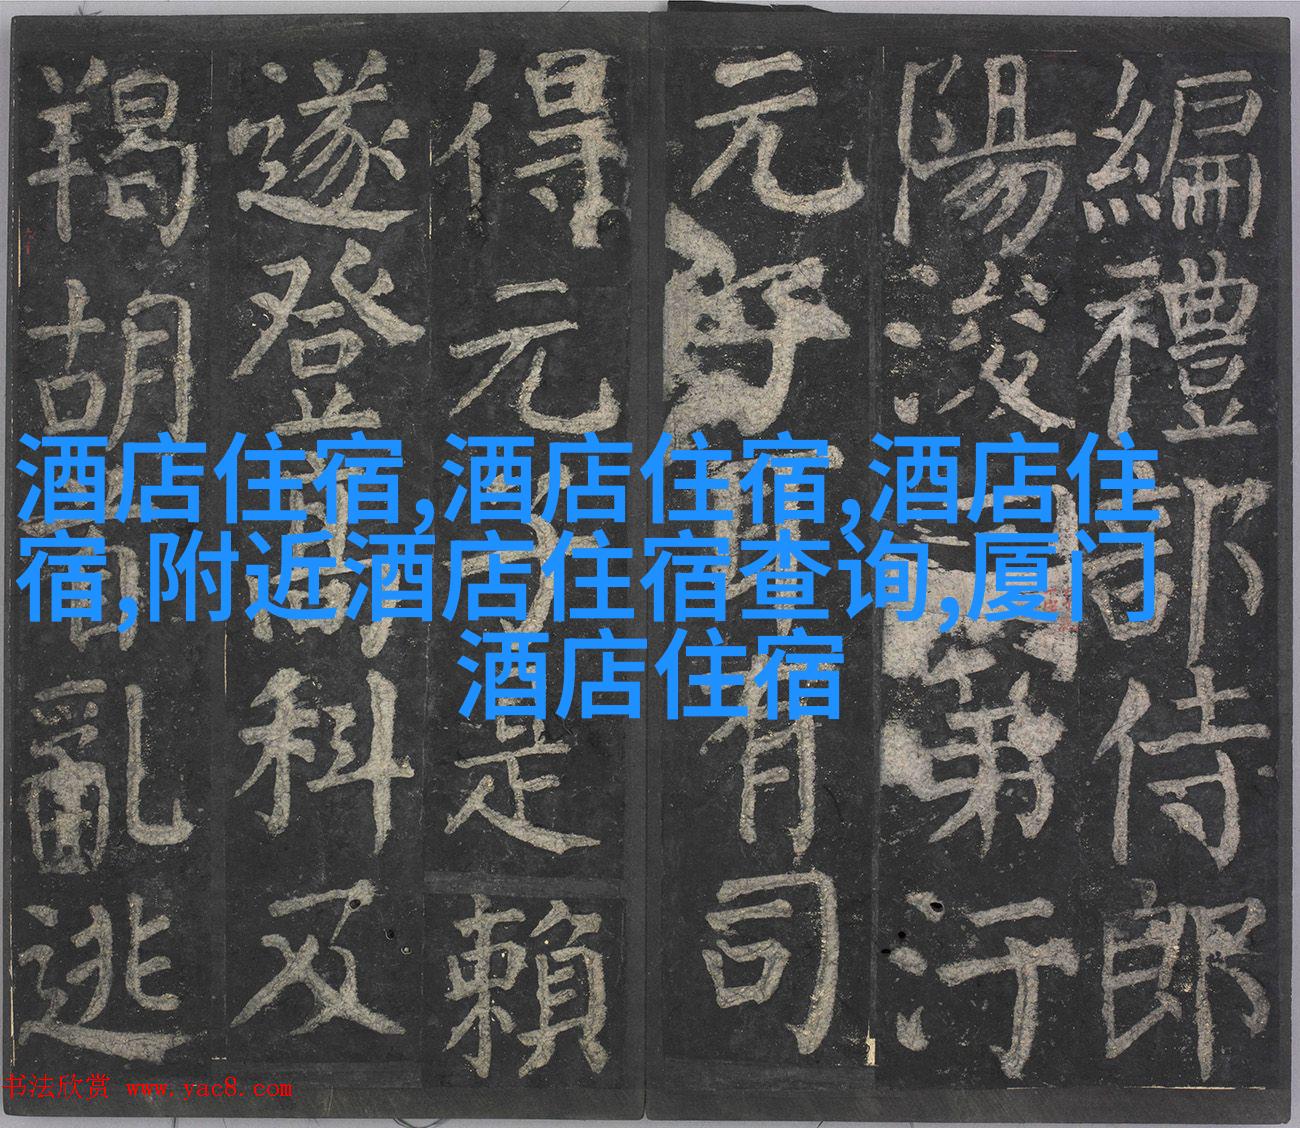 編禮部侍郎
陽浚曰第汙
元子耳有司
得元子是賴
遂登高科及
羯胡首亂逃
酒店住宿,酒店住宿,酒店住
宿,附近酒店住宿查询,厦门
酒店住宿
书法欣赏 www.yac8.com